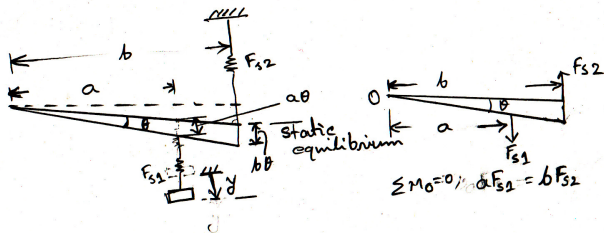 b
F_s2
a
aθ
θ
static
equilibrium
bθ
F_s1
y
F_s2
b
O
θ
a
F_s1
ΣM_O=0; aF_s1 = bF_s2